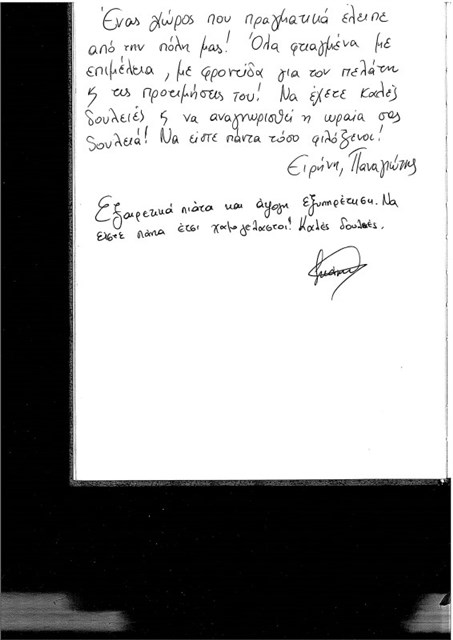 Ένας χώρος που πραγματικά έλειπε
από την πόλη μας! Όλα φτιαγμένα με
επιμέλεια, με φροντίδα για τον πελάτη
ς τις προτιμήσεις του! Να έχετε καλές
δουλειές ς να αναγνωρισθεί η ωραία σας
δουλειά! Να είστε πάντα τόσο φιλόξενοι!
Ειρήνη, Παναγιώτης
Εξαιρετικά πιάτα και άψογη εξυπηρέτηση. Να
είστε πάντα έτσι χαμογελαστοί! Καλές δουλειές.